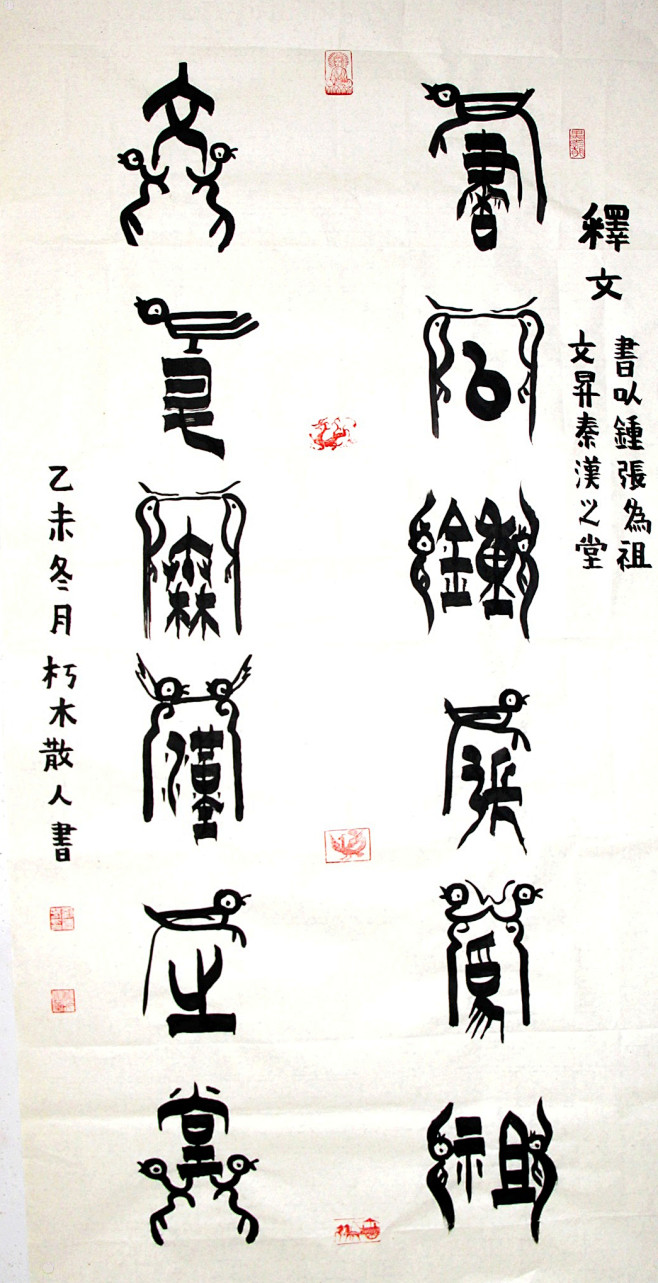 釋文
書以鍾張為祖
文昇秦漢之堂
書以鍾張為祖
文昇秦漢之堂
乙未冬月 朽木散人書